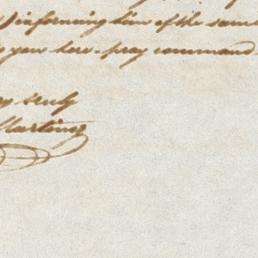 informing him of the same
you here. pray command
truly
Martin